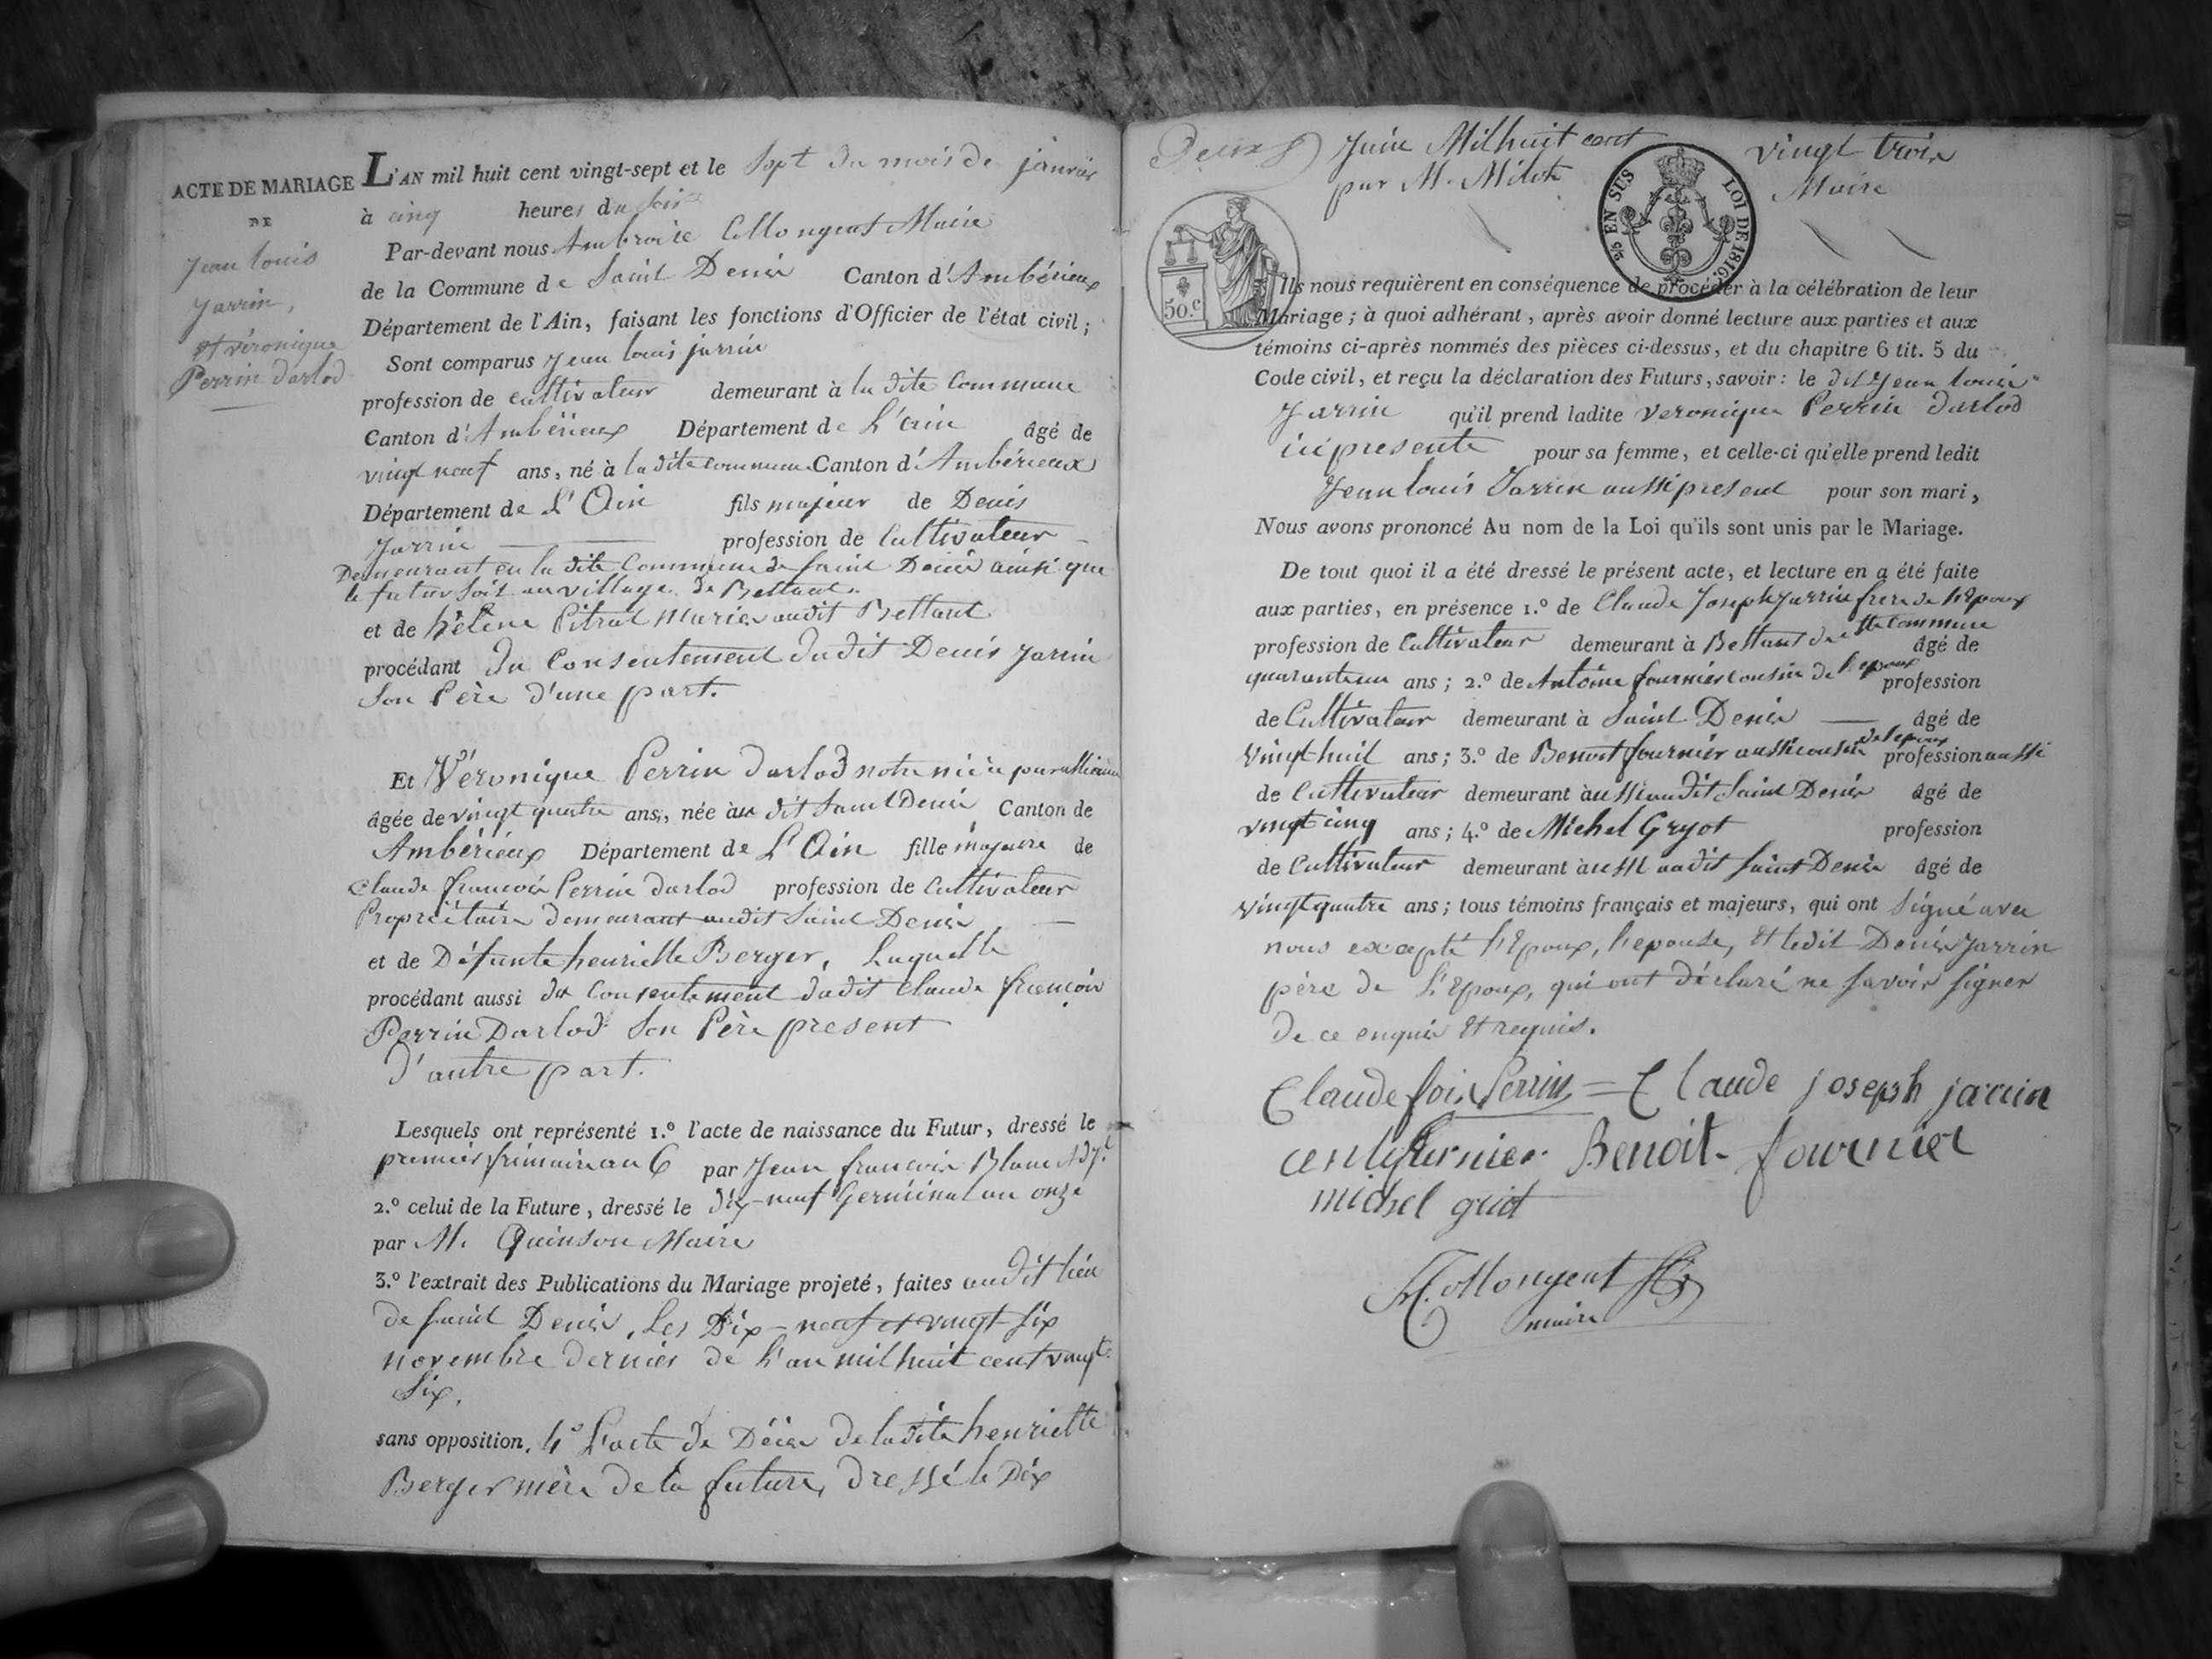 ACTE DE MARIAGE
DE
Jean louis
Jarrin,
et véronique
Perrin darlod
L'AN mil huit cent vingt-sept et le Sept du mois de janvier
à cinq heures du soir
Par-devant nous Ambroise Mongent Maire
de la Commune de Saint Denis Canton d'Ambérieux
Département de l'Ain, faisant les fonctions d'Officier de l'état civil;
Sont comparus Jean louis jarrin
profession de cultivateur demeurant à la dite Commune
Canton d'Ambérieux Département de L'ain âgé de
vingt neuf ans, né à la dite commune Canton d'Ambérieux
Département de L'Ain fils majeur de Denis
Jarrin profession de Cultivateur
Demeurant en la dite Commune de Saint Denis ainsi que
le futur soit au village de Bettant.
et de hélène Pitrat Mariés audit Bettant
procédant du Consentement dudit Denis Jarrin
Son Père d'une part.
Et Véronique Perrin darlod notre nièce par alliance
âgée de vingt quatre ans, née au dit Saint Denis Canton de
Ambérieux Département de L'Ain fille majeure de
Claude françois Perrin darlod profession de Cultivateur
Propriétaire demeurant audit Saint Denis
et de Défunte henriette Berger, Laquelle
procédant aussi du Consentement dudit Claude françois
Perrin Darlod Son Père present
d'autre part.
Lesquels ont représenté 1.º l'acte de naissance du Futur, dressé le
premier frimaire an 6 par Jean françois Blanc Adj.t
2.º celui de la Future, dressé le dix-neuf Germinal an onze
par M. Quinson Maire
3.º l'extrait des Publications du Mariage projeté, faites audit lieu
de Saint Denis, Les Dix-neuf et vingt Six
novembre dernier de L'an mil huit cent vingt
Six,
sans opposition, 4º L'acte de Décès de ladite henriette
Berger mère de la future, dressé le Dix
Deux Juin Mil huit cent vingt trois
par M. Milot Maire
50.C
25 EN SUS LOI DE 1816.
Ils nous requièrent en conséquence de procéder à la célébration de leur
Mariage; à quoi adhérant, après avoir donné lecture aux parties et aux
témoins ci-après nommés des pièces ci-dessus, et du chapitre 6 tit. 5 du
Code civil, et reçu la déclaration des Futurs, savoir: le dit Jean louis
Jarrin qu'il prend ladite veronique Perrin darlod
ici presente pour sa femme, et celle-ci qu'elle prend ledit
Jean louis Jarrin aussi present pour son mari,
Nous avons prononcé Au nom de la Loi qu'ils sont unis par le Mariage.
De tout quoi il a été dressé le présent acte, et lecture en a été faite
aux parties, en présence 1.º de Claude Joseph Jarrin frere de l'Epoux
profession de Cultivateur demeurant à Bettant commune âgé de
ans; 2.º de Antoine fournier cousin de l'epoux profession
de Cultivateur demeurant à Saint Denis âgé de
vingt huit ans; 3.º de Benoit fournier aussi cousin de l'epoux profession aussi
de Cultivateur demeurant aussi audit Saint Denis âgé de
vingt cinq ans; 4.º de Michel Gryot profession
de Cultivateur demeurant aussi audit Saint Denis âgé de
vingt quatre ans; tous témoins français et majeurs, qui ont Signé avec
nous excepté l'Epoux, l'epouse, et ledit Denis Jarrin
père de L'Epoux, qui ont déclaré ne savoir signer
de ce enquis et requis.
Claude fois Perrin = Claude joseph jarrin
Benoit fournier
michel griot
Mongent
maire